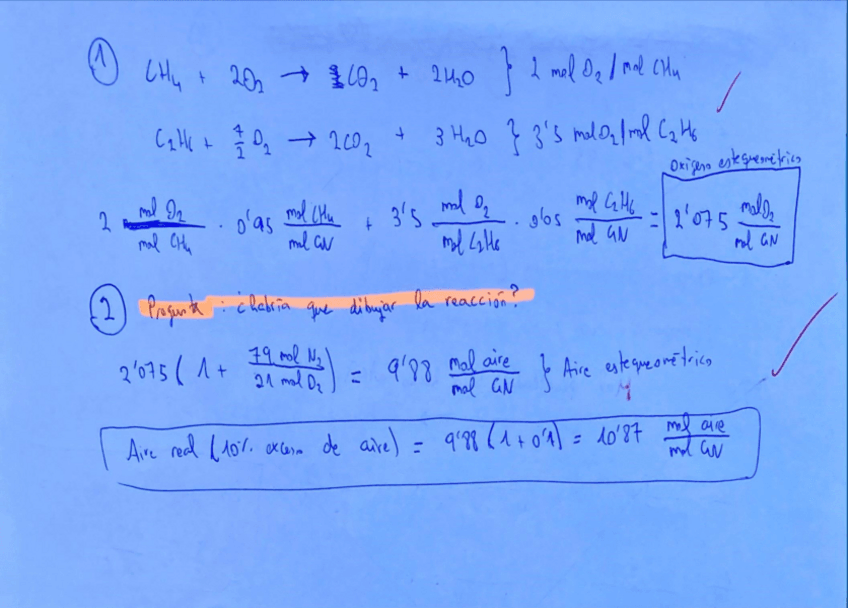 1
CH4 + 2O2 → CO2 + 2H2O } 2 mol O2/mol CH4
C2H6 + 7/2 O2 → 2CO2 + 3H2O } 3'5 mol O2/mol C2H6
Oxígeno estequeométrico
2 mol O2/mol CH4 · 0'95 mol CH4/mol GN + 3'5 mol O2/mol C2H6 · 0'05 mol C2H6/mol GN = 2'075 mol O2/mol GN
2 Pregunta: ¿habría que dibujar la reacción?
2'075 (1 + 79 mol N2/21 mol O2) = 9'88 mol aire/mol GN } Aire estequeométrico
Aire real (10% exceso de aire) = 9'88 (1 + 0'1) = 10'87 mol aire/mol GN